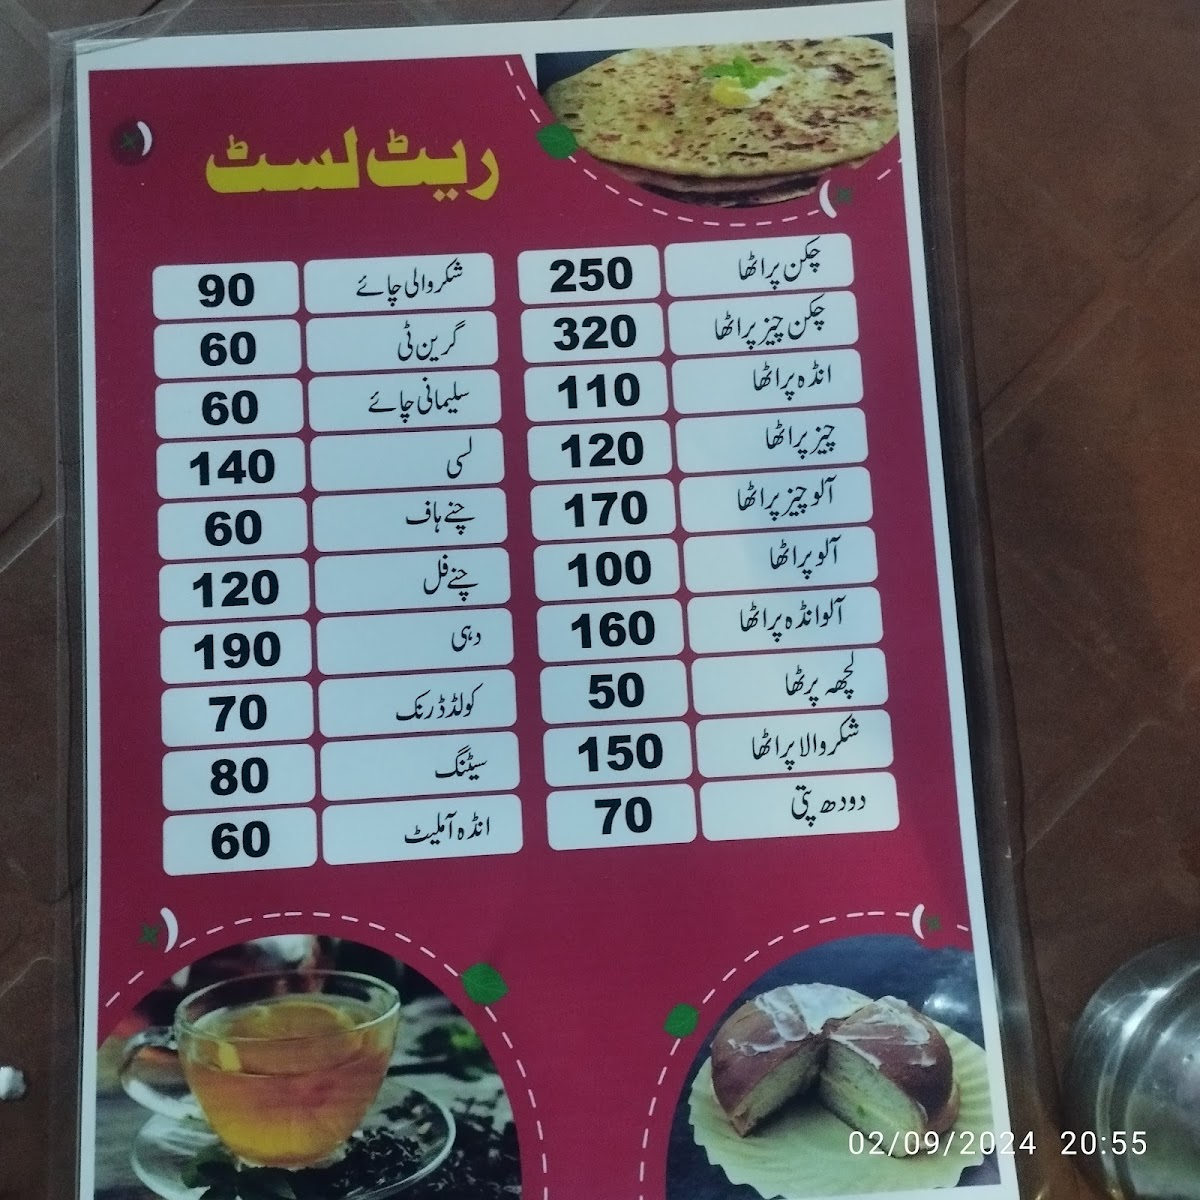 ریٹ لسٹ
چکن پراٹھا 250
چکن چیز پراٹھا 320
انڈہ پراٹھا 110
چیز پراٹھا 120
آلو چیز پراٹھا 170
آلو پراٹھا 100
آلو انڈہ پراٹھا 160
لچھہ پرٹھا 50
شکر والا پراٹھا 150
دودھ پتی 70
شکر والی چائے 90
گرین ٹی 60
سلیمانی چائے 60
لسی 140
چنے ہاف 60
چنے فل 120
دہی 190
کولڈ ڈرنک 70
سیٹنگ 80
انڈہ آملیٹ 60
02/09/2024 20:55